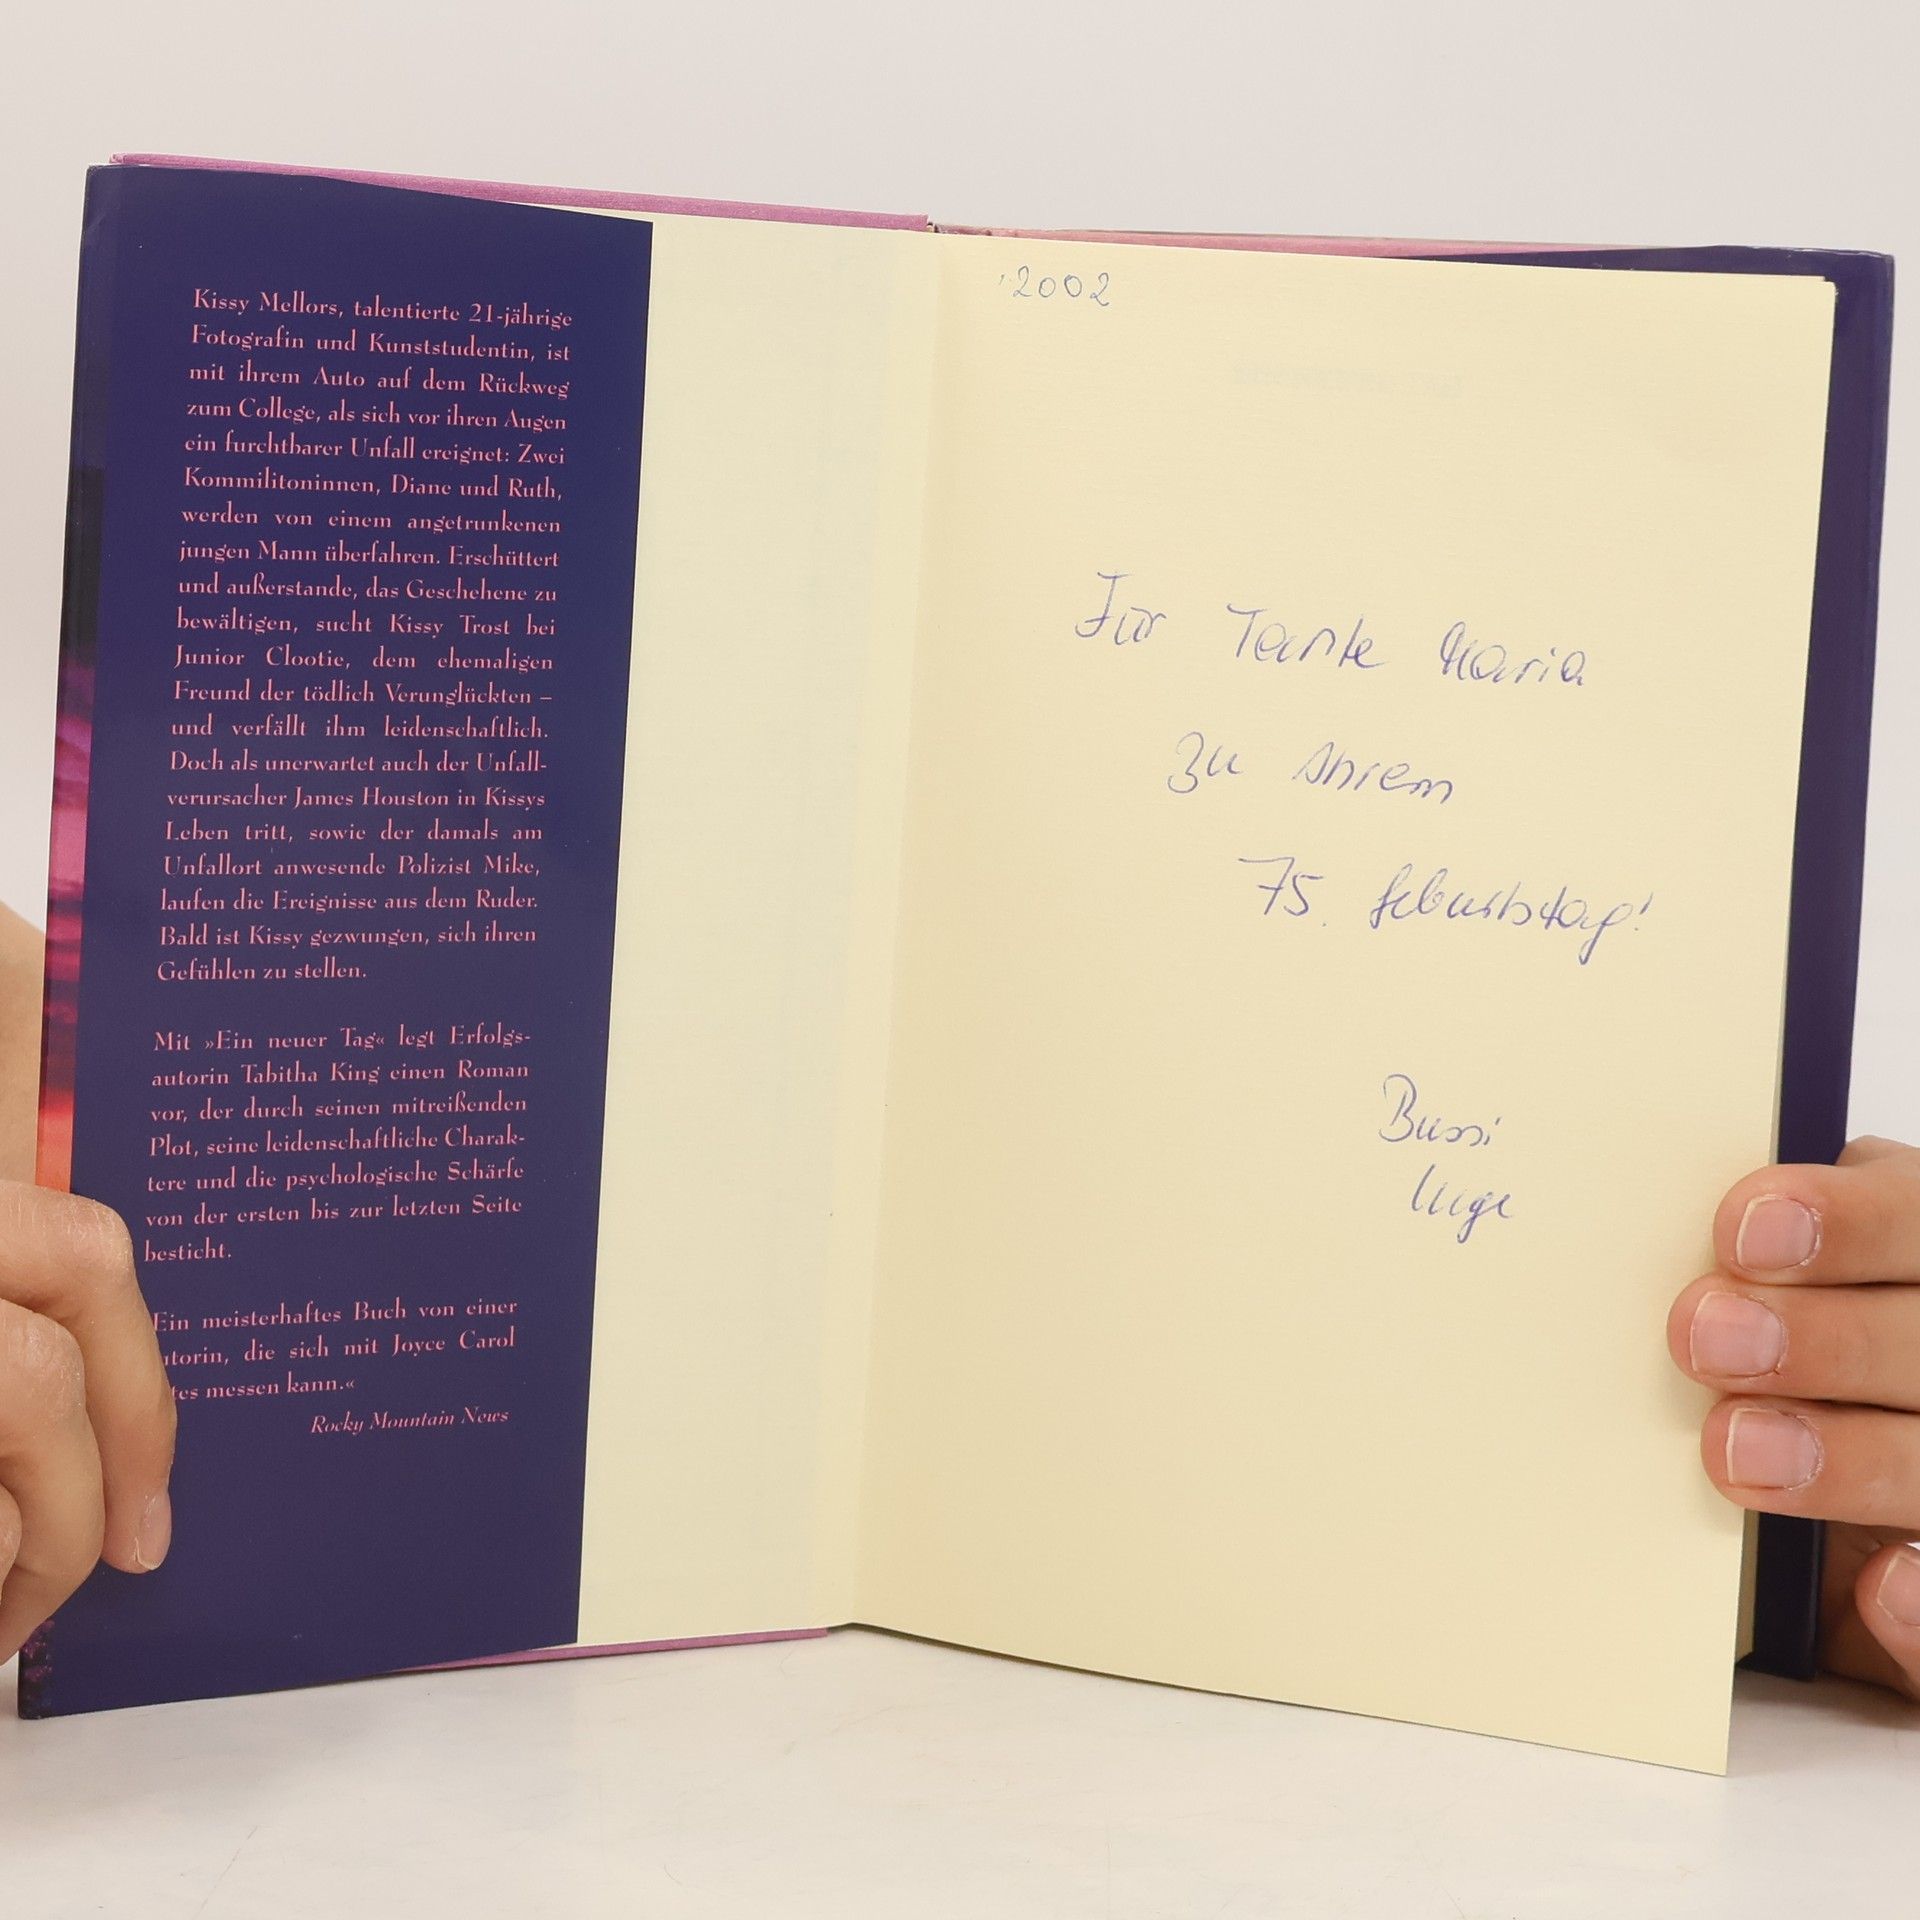 Kissy Mellors, talentierte 21-jährige
Fotografin und Kunststudentin, ist
mit ihrem Auto auf dem Rückweg
zum College, als sich vor ihren Augen
ein furchtbarer Unfall ereignet: Zwei
Kommilitoninnen, Diane und Ruth,
werden von einem angetrunkenen
jungen Mann überfahren. Erschüttert
und außerstande, das Geschehene zu
bewältigen, sucht Kissy Trost bei
Junior Clootie, dem ehemaligen
Freund der tödlich Verunglückten –
und verfällt ihm leidenschaftlich.
Doch als unerwartet auch der Unfall-
verursacher James Houston in Kissys
Leben tritt, sowie der damals am
Unfallort anwesende Polizist Mike,
laufen die Ereignisse aus dem Ruder.
Bald ist Kissy gezwungen, sich ihren
Gefühlen zu stellen.
Mit »Ein neuer Tag« legt Erfolgs-
autorin Tabitha King einen Roman
vor, der durch seinen mitreißenden
Plot, seine leidenschaftliche Charak-
tere und die psychologische Schärfe
von der ersten bis zur letzten Seite
besticht.
Ein meisterhaftes Buch von einer
utorin, die sich mit Joyce Carol
tes messen kann.«
Rocky Mountain News
2002
Für Tante Maria
zu ihrem
75. Geburtstag!
Bussi